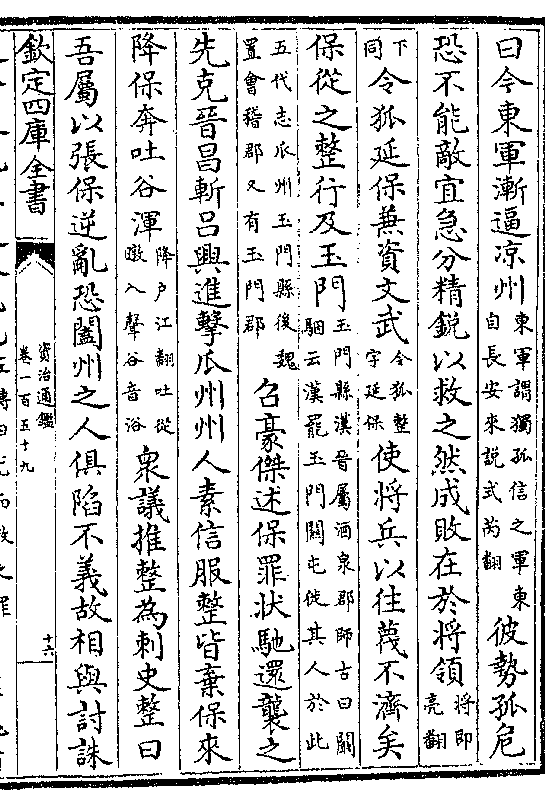 曰今東軍漸逼凉州東軍謂獨孤信之軍東自長安來説式芮翻彼勢孤危
恐不能敵宜急分精鋭以救之然成敗在於將領將即亮翻
下同令狐延保兼資文武令狐整字延保使將兵以往蔑不濟矣
保從之整行及玉門玉門縣漢晉屬酒泉郡師古曰闞駰云漢罷玉門關屯徙其人於此
五代志瓜州玉門縣後魏置會稽郡又有玉門郡召豪傑述保罪狀馳還襲之
先克晉昌斬呂興進擊瓜州州人素信服整皆棄保來
降保奔吐谷渾降户江翻吐從暾入聲谷音浴衆議推整為刺史整曰
吾屬以張保逆亂恐闔州之人俱陷不義故相與討誅
欽定四庫全書
資治通鑑
卷一百五十九
十六